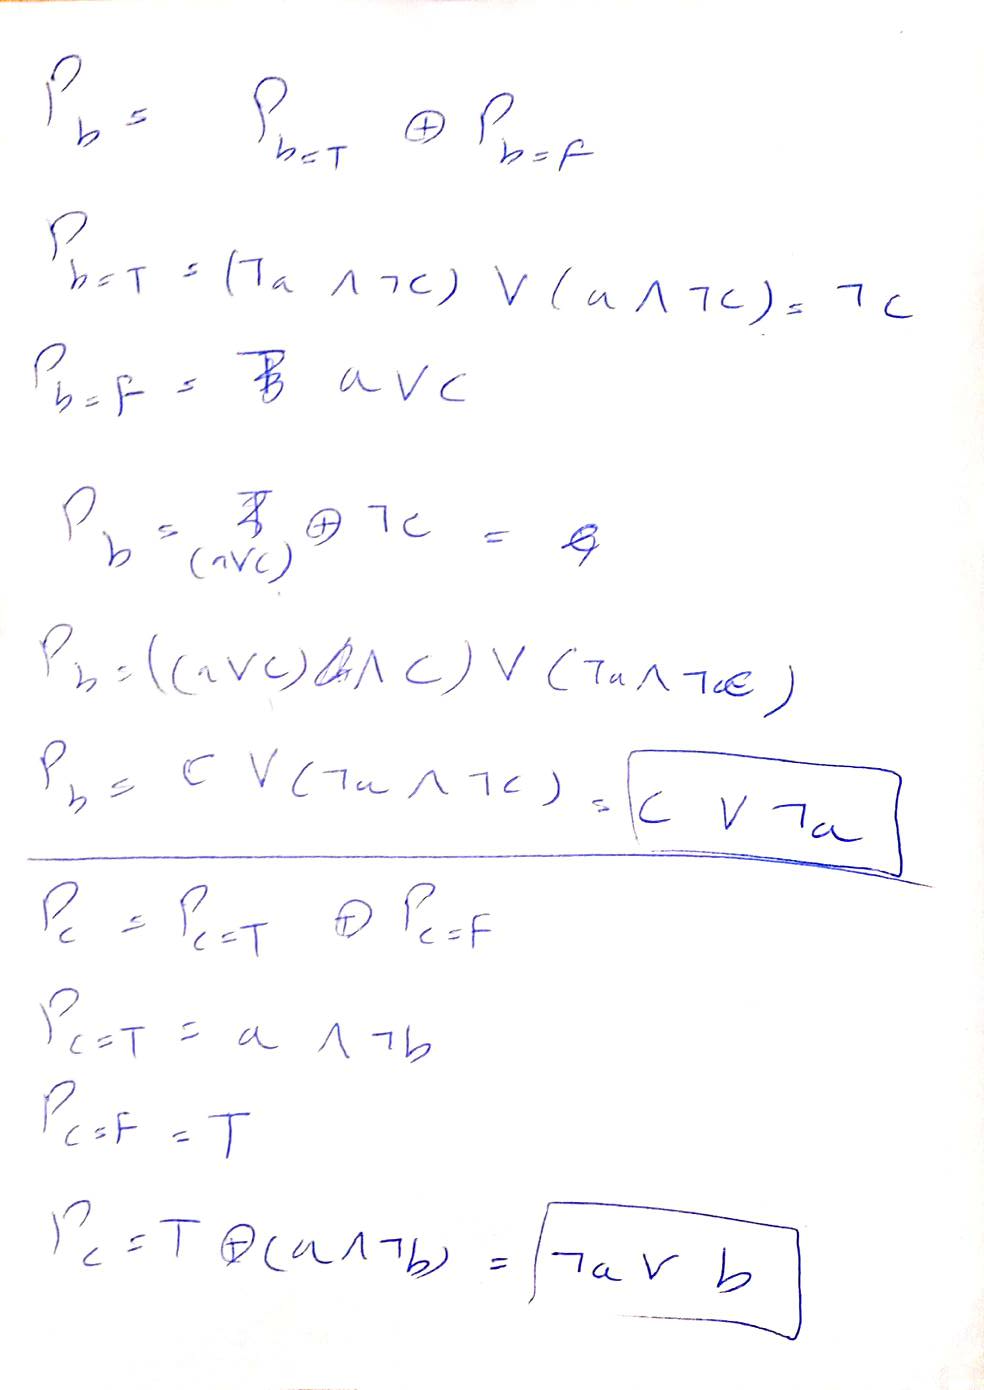 P_b = P_{b=T} ⊕ P_{b=F}
P_{b=T} = (¬a ∧ ¬c) ∨ (a ∧ ¬c) = ¬c
P_{b=F} = a ∨ c
P_b = (a∨c) ⊕ ¬c =
P_b = ((a∨c) ∧ c) ∨ (¬a ∧ ¬c)
P_b = c ∨ (¬a ∧ ¬c) = c ∨ ¬a
P_c = P_{c=T} ⊕ P_{c=F}
P_{c=T} = a ∧ ¬b
P_{c=F} = T
P_c = T ⊕ (a ∧ ¬b) = ¬a ∨ b